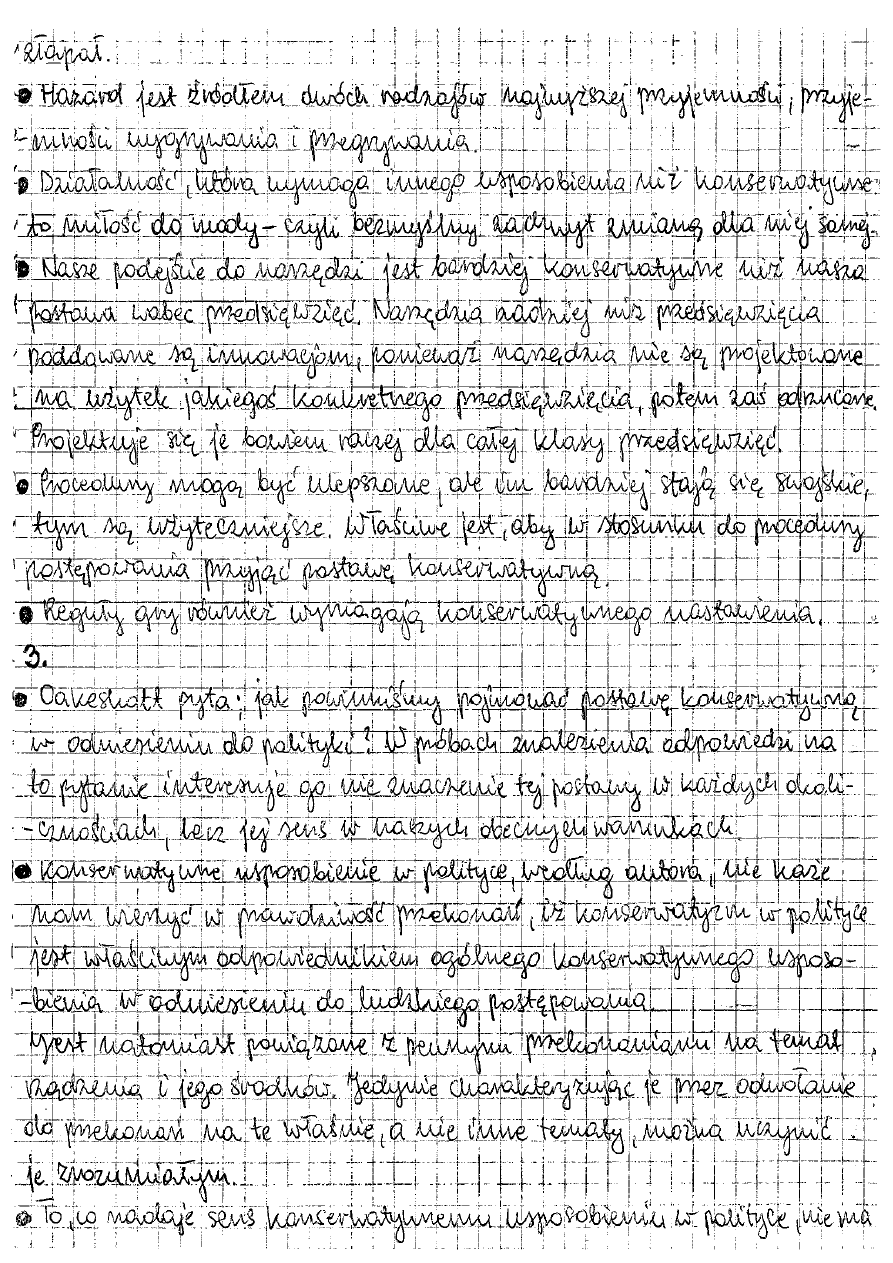 złapał.
• Hazard jest źródłem dwóch rodzajów najwyższej przyjemności, przyje-
-mności wygrywania i przegrywania.
• Działalność, która wymaga innego usposobienia niż konserwatywne
to miłość do mody – czyli bezmyślny zachwyt zmianą dla niej samej.
• Nasze podejście do narzędzi jest bardziej konserwatywne niż nasza
postawa wobec przedsięwzięć. Narzędzia rzadziej niż przedsięwzięcia
poddawane są innowacjom, ponieważ narzędzia nie są projektowane
na użytek jakiegoś konkretnego przedsięwzięcia, potem zaś odrzucone.
Projektuje się je bowiem raczej dla całej klasy przedsięwzięć.
• Procedury mogą być ulepszane, ale im bardziej stają się swojskie,
tym są użyteczniejsze. Właściwe jest, aby w stosunku do procedury
postępowania przyjąć postawę konserwatywną.
• Reguły gry również wymagają konserwatywnego nastawienia.
3.
• Oakeshott pyta: jak powinniśmy pojmować postawę konserwatywną
w odniesieniu do polityki? W próbach znalezienia odpowiedzi na
to pytanie interesuje go nie znaczenie tej postawy w każdych okoli-
-cznościach, lecz jej sens w naszych obecnych warunkach.
• Konserwatywne usposobienie w polityce, według autora, nie każe
nam wierzyć w prawdziwość przekonań, iż konserwatyzm w polityce
jest właściwym odpowiednikiem ogólnego konserwatywnego usposo-
-bienia w odniesieniu do ludzkiego postępowania.
Jest natomiast powiązane z pewnymi przekonaniami na temat
rządzenia i jego środków. Jedynie charakteryzując je przez odwołanie
do przekonań na te właśnie, a nie inne tematy, można uczynić
je zrozumiałym.
• To, co nadaje sens konserwatywnemu usposobieniu w polityce, nie ma